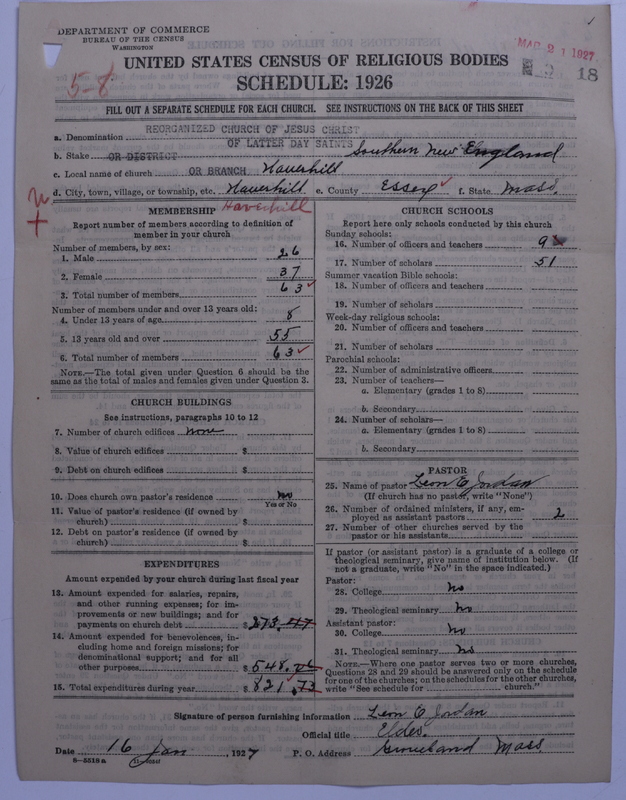 DEPARTMENT OF COMMERCE
BUREAU OF THE CENSUS
WASHINGTON
MAR 21 1927
18
UNITED STATES CENSUS OF RELIGIOUS BODIES
5-8
SCHEDULE: 1926
FILL OUT A SEPARATE SCHEDULE FOR EACH CHURCH. SEE INSTRUCTIONS ON THE BACK OF THIS SHEET
a. Denomination REORGANIZED CHURCH OF JESUS CHRIST
OF LATTER DAY SAINTS
b. Stake OR DISTRICT Southern New England
c. Local name of church OR BRANCH Haverhill
d. City, town, village, or township, etc. Haverhill e. County Essex f. State Mass.
MEMBERSHIP Haverhill
Report number of members according to definition of
member in your church
Number of members, by sex:
1. Male 26
2. Female 37
3. Total number of members 63
Number of members under and over 13 years old:
4. Under 13 years of age 8
5. 13 years old and over 55
6. Total number of members 63
NOTE.—The total given under Question 6 should be
same as the total of males and females given under Question 3.
CHURCH BUILDINGS
See instructions, paragraphs 10 to 12
7. Number of church edifices none
8. Value of church edifices $
9. Debt on church edifices $
10. Does church own pastor's residence no
Yes or No
11. Value of pastor's residence (if owned by
church) $
12. Debt on pastor's residence (if owned by
church) $
EXPENDITURES
Amount expended by your church during last fiscal year
13. Amount expended for salaries, repairs,
and other running expenses; for im-
provements or new buildings; and for
payments on church debt $ 273.47
14. Amount expended for benevolences, in-
cluding home and foreign missions; for
denominational support; and for all
other purposes $ 548.26
15. Total expenditures during year $ 821.73
CHURCH SCHOOLS
Report here only schools conducted by this church
Sunday schools:
16. Number of officers and teachers 9
17. Number of scholars 51
Summer vacation Bible schools:
18. Number of officers and teachers
19. Number of scholars
Week-day religious schools:
20. Number of officers and teachers
21. Number of scholars
Parochial schools:
22. Number of administrative officers
23. Number of teachers—
a. Elementary (grades 1 to 8)
b. Secondary
24. Number of scholars—
a. Elementary (grades 1 to 8)
b. Secondary
PASTOR
25. Name of pastor Leon E Jordan
(If church has no pastor, write "None")
26. Number of ordained ministers, if any, em-
ployed as assistant pastors 2
27. Number of other churches served by the
pastor or his assistants
If pastor (or assistant pastor) is a graduate of a college or
theological seminary, give name of institution below. (If
not a graduate, write "No" in the space indicated.)
Pastor:
28. College No
29. Theological seminary No
Assistant pastor:
30. College No
31. Theological seminary No
NOTE.—Where one pastor serves two or more churches,
Questions 28 and 29 should be answered only on the schedule
for one of the churches; on the schedules for the other churches,
write "See schedule for church."
Signature of person furnishing information Leon E Jordan
Official title Elder.
Date 16 Jan 1927 P. O. Address Groveland Mass
8—5518a